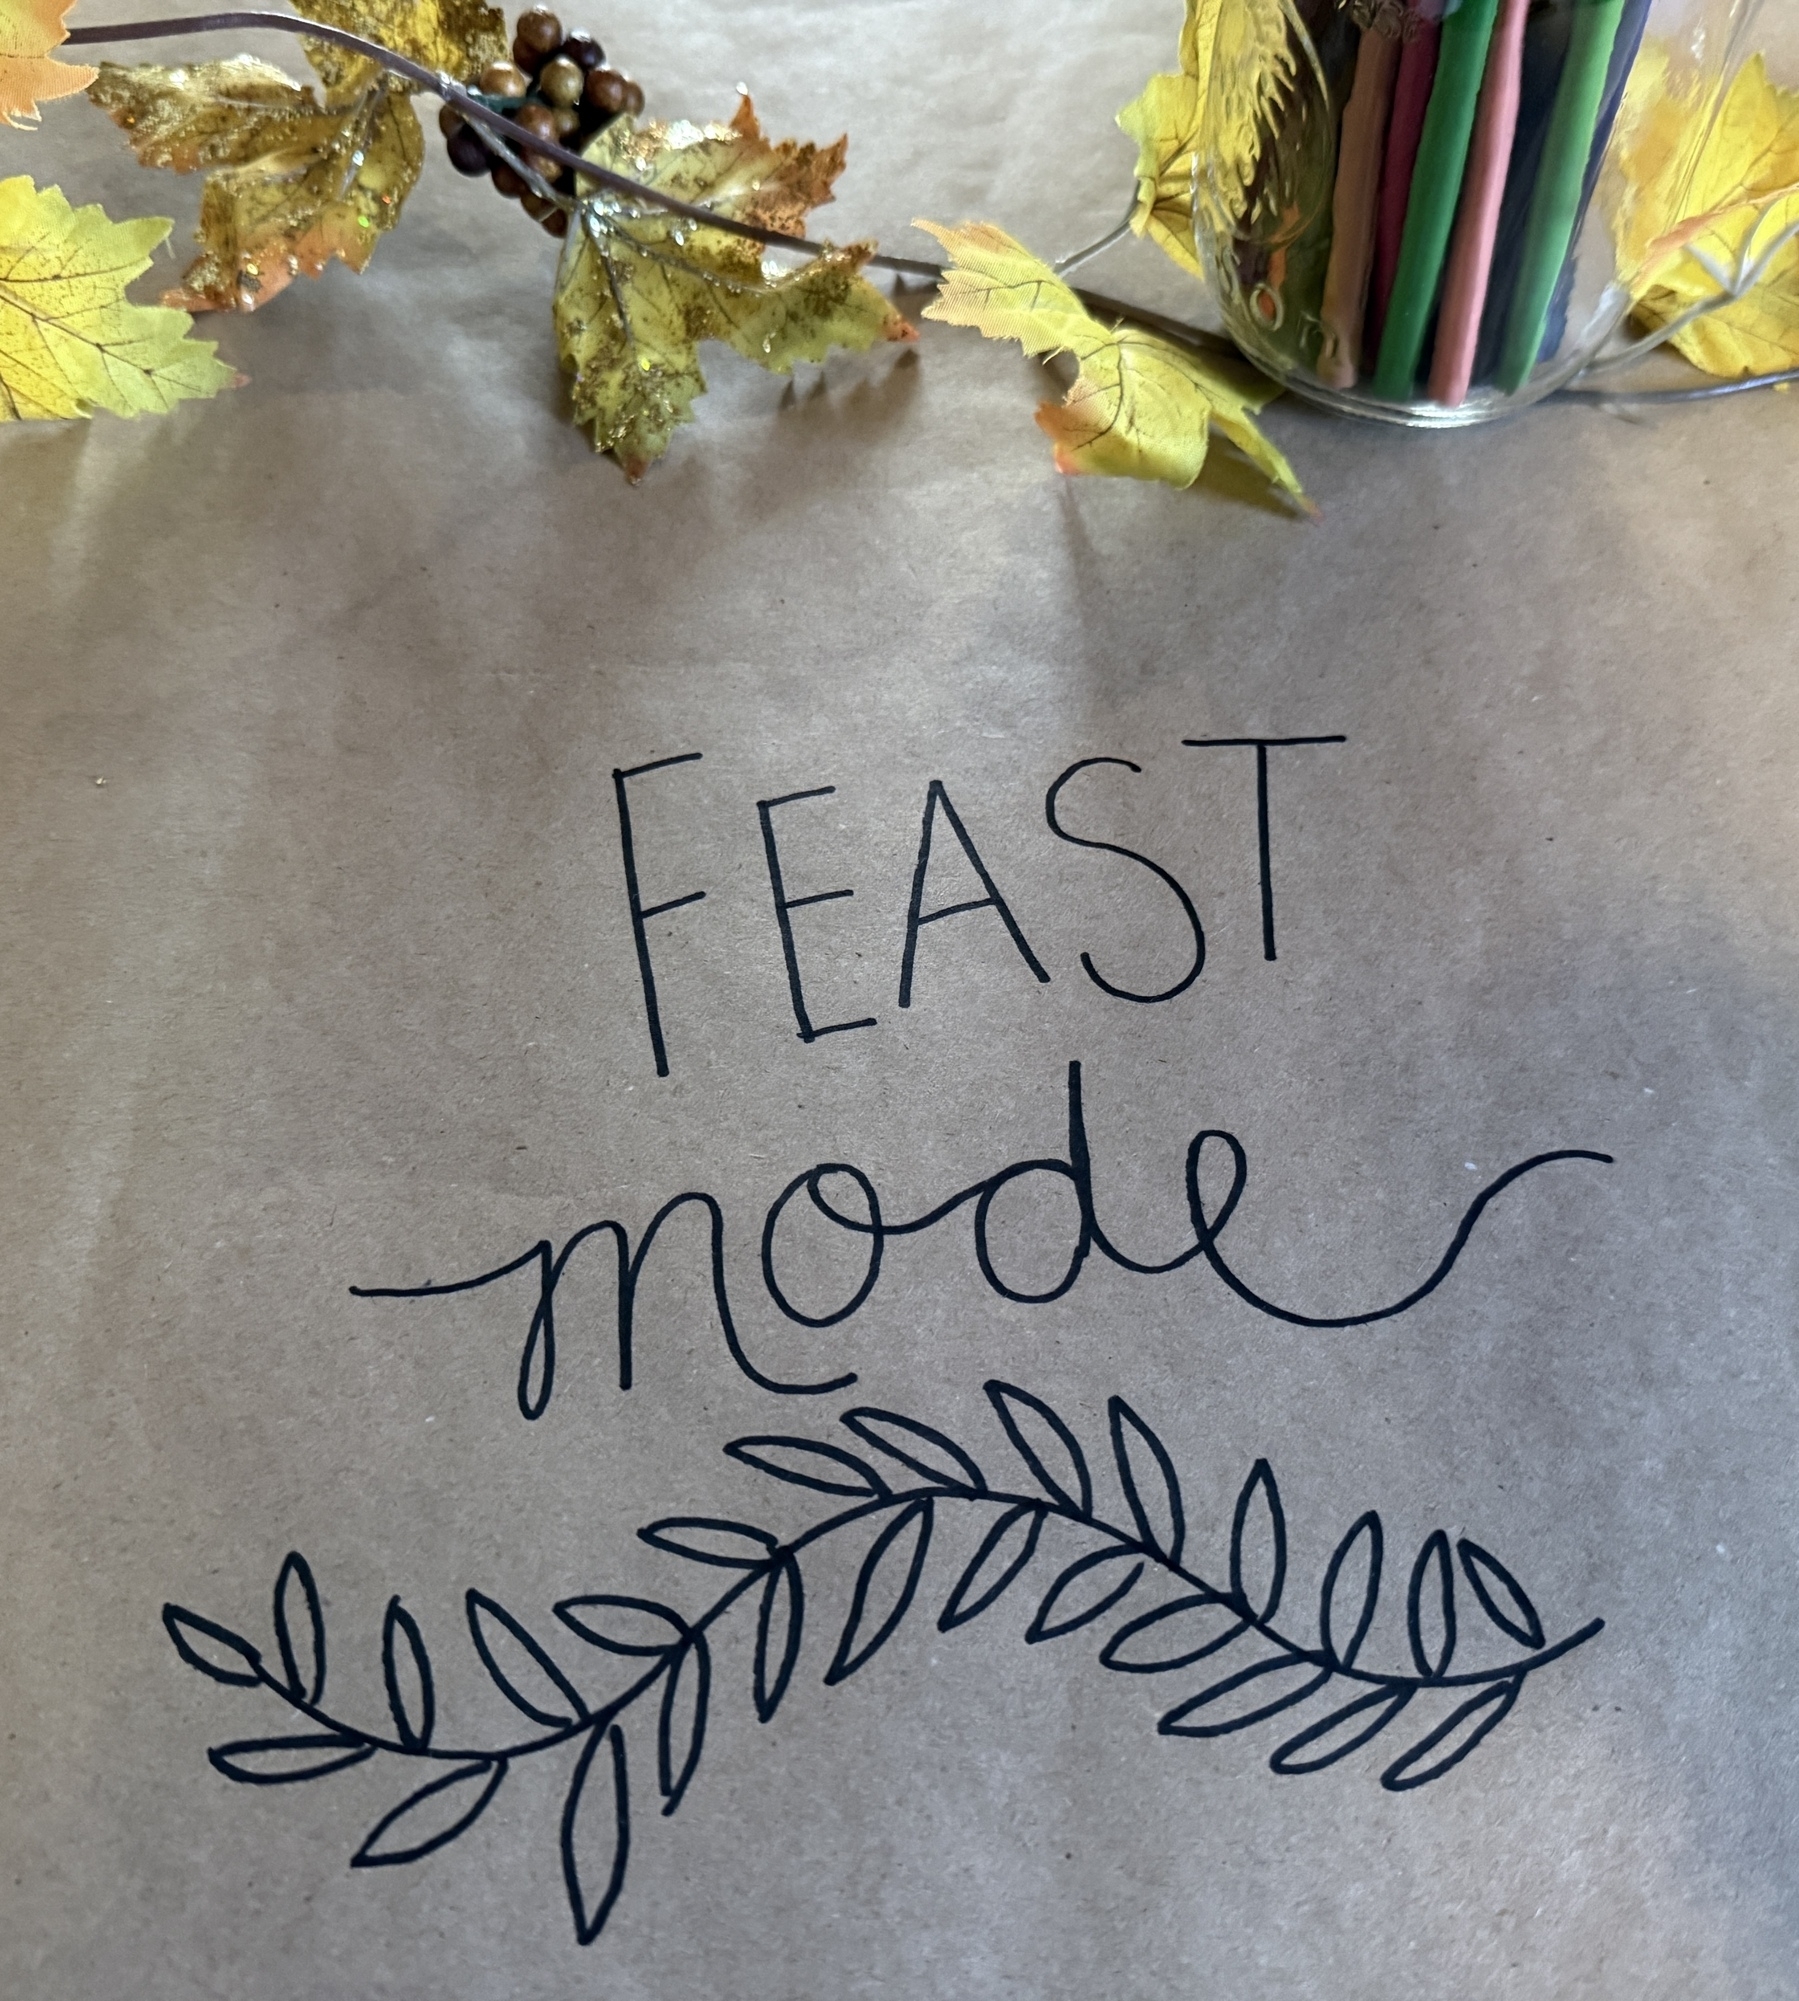 FEAST
mode